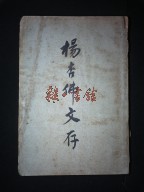 楊杏佛文存